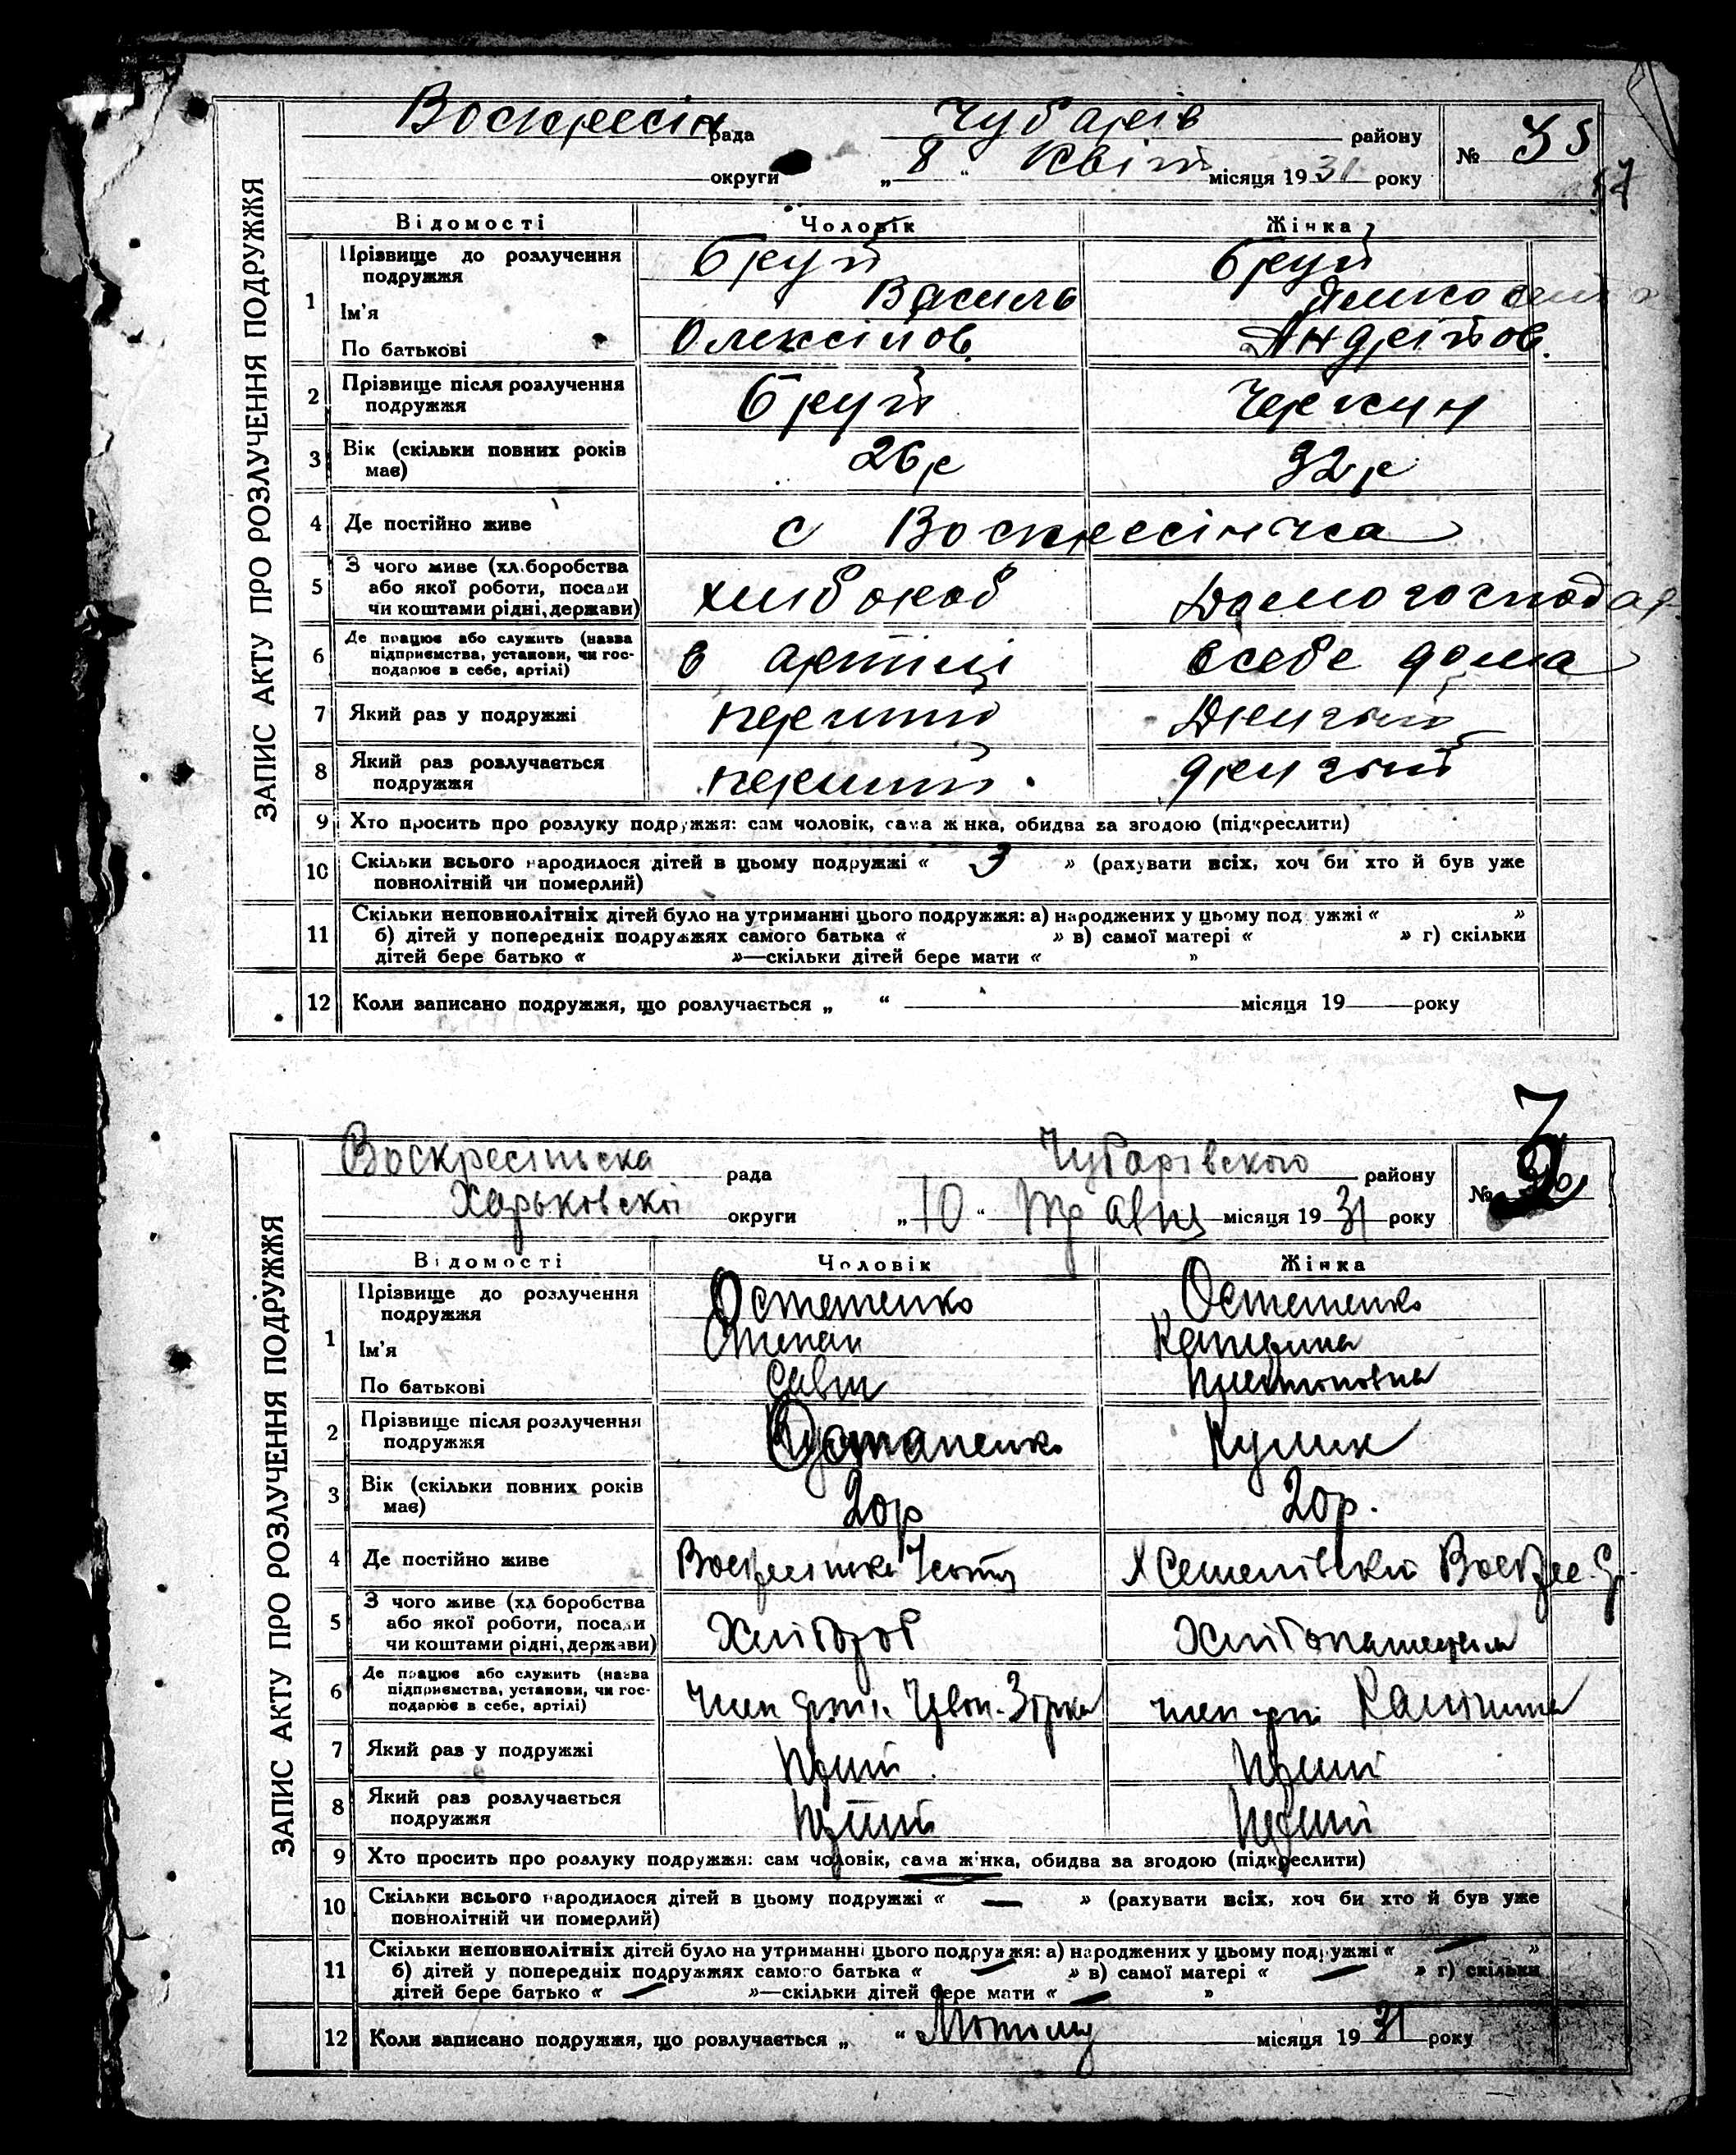 ЗАПИС АКТУ ПРО РОЗЛУЧЕННЯ ПОДРУЖЖЯ
Воскресін рада Чубарів району № 35
округи „ 8 “ Квіт місяця 1931 року
Відомості Чоловік Жінка
1 Прізвище до розлучення подружжя Бруй Бруй
Ім'я Василь
По батькові Олексійов. Андрійов.
2 Прізвище після розлучення подружжя Бруй Черкун
3 Вік (скільки повних років має) 26р 32р
4 Де постійно живе с Воскресінька
5 З чого живе (хл.боробства або якої роботи, посади чи коштами рідні, держави) хлібороб Домогосподар.
6 Де працює або служить (назва підприємства, установи, чи господарює в себе, артілі) в артілі в себе дома
7 Який раз у подружжі перший Другий
8 Який раз розлучається подружжя перший. другий
9 Хто просить про розлуку подружжя: сам чоловік, сама жінка, обидва за згодою (підкреслити)
10 Скільки всього народилося дітей в цьому подружжі « 3 » (рахувати всіх, хоч би хто й був уже
повнолітній чи померлий)
11 Скільки неповнолітніх дітей було на утриманні цього подружжя: а) народжених у цьому подружжі « »
б) дітей у попередніх подружжях самого батька « » в) самої матері « » г) скільки
дітей бере батько « »—скільки дітей бере мати « »
12 Коли записано подружжя, що розлучається „ “ місяця 19 року
ЗАПИС АКТУ ПРО РОЗЛУЧЕННЯ ПОДРУЖЖЯ
Воскресінська рада Чубарівського району №
Харьковскої округи „ 10 “ Травня місяця 1931 року
Відомості Чоловік Жінка
1 Прізвище до розлучення подружжя Остапенко Остапенко
Ім'я Степан Катерина
По батькові Савич
2 Прізвище після розлучення подружжя Остапенко Кулик
3 Вік (скільки повних років має) 20р 20р.
4 Де постійно живе
5 З чого живе (хл боробства або якої роботи, посади чи коштами рідні, держави) Хлібороб
6 Де працює або служить (назва підприємства, установи, чи господарює в себе, артілі) член арт. Черв. Зірка член арт. Калініна
7 Який раз у подружжі перший перший
8 Який раз розлучається подружжя перший перший
9 Хто просить про розлуку подружжя: сам чоловік, сама жінка, обидва за згодою (підкреслити)
10 Скільки всього народилося дітей в цьому подружжі « — » (рахувати всіх, хоч би хто й був уже
повнолітній чи померлий)
11 Скільки неповнолітніх дітей було на утриманні цього подружжя: а) народжених у цьому подружжі « — »
б) дітей у попередніх подружжях самого батька « — » в) самої матері « — » г) скільки
дітей бере батько « — »—скільки дітей бере мати « — »
12 Коли записано подружжя, що розлучається „ “ Лютому місяця 1931 року